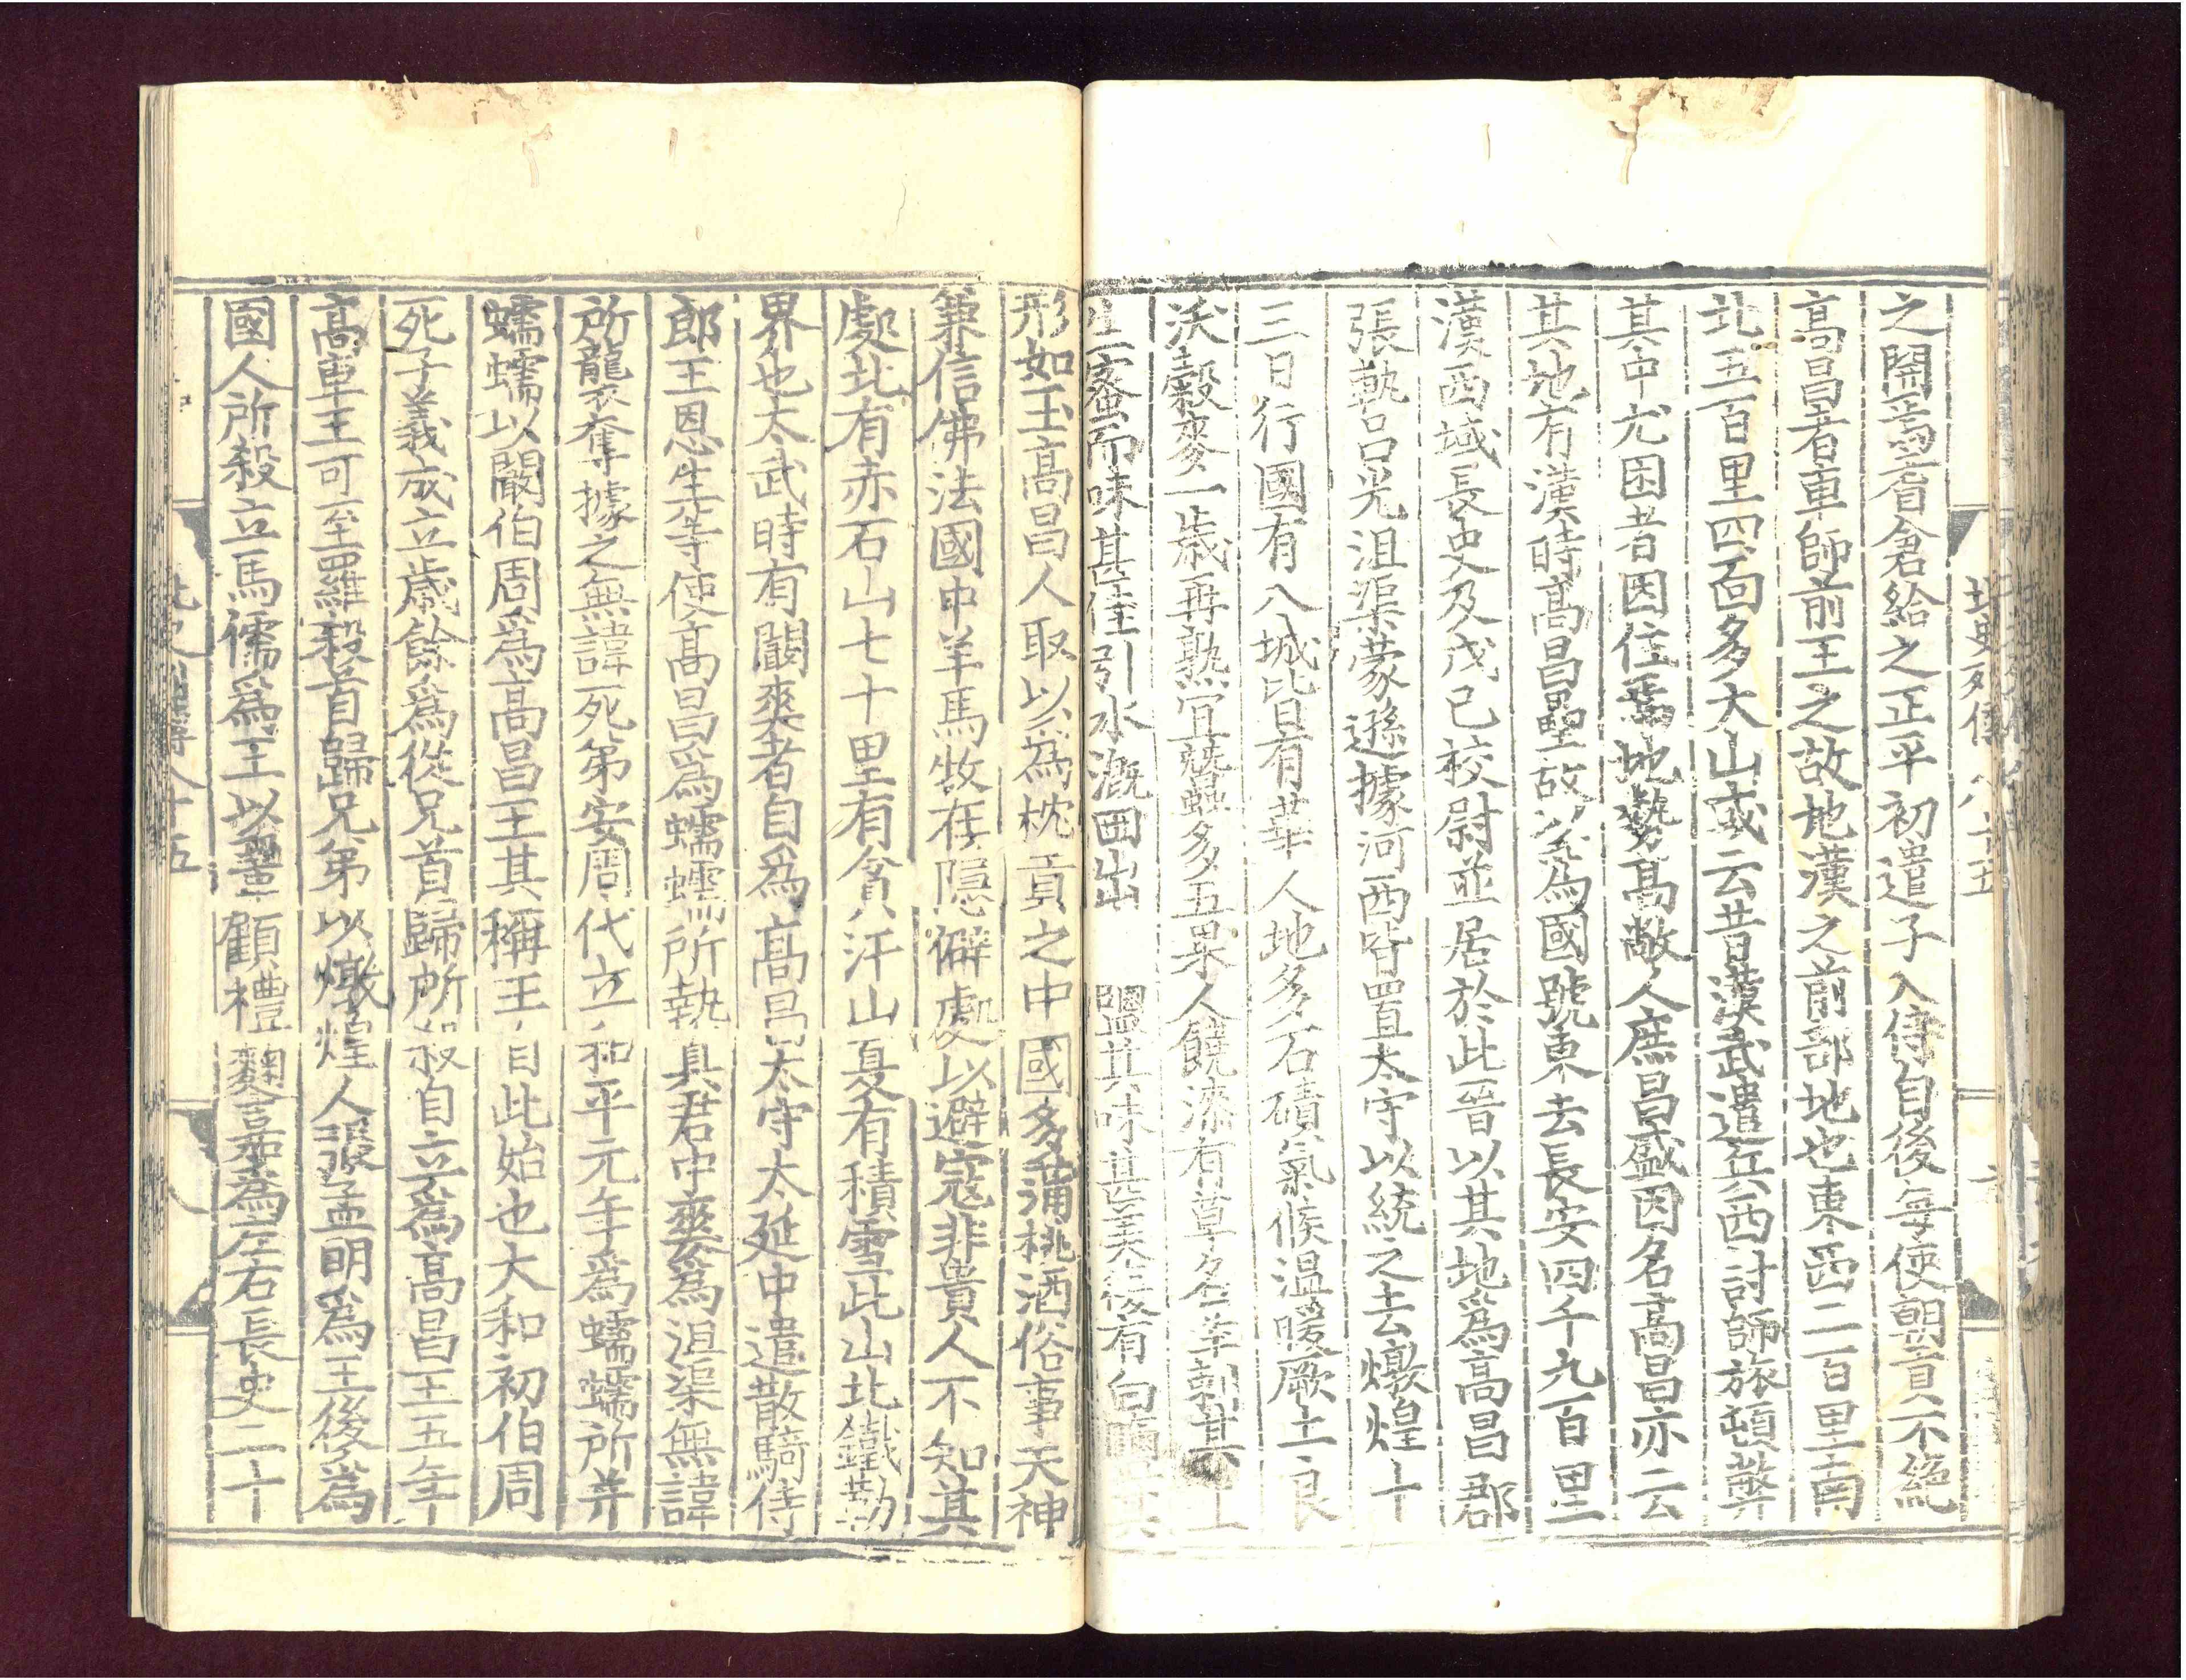 之開焉耆倉給之正平初遣子入侍自後每使朝貢不絕
高昌者車師前王之故地漢之前部地也東西二百里南
北五百里四面多大山或云昔漢武遣兵西討師旅頓弊
其中尤困者因住焉地勢高敞人庶昌盛因名高昌亦云
其地有漢時高昌壘故以爲國號東去長安四千九百里
漢西域長史及戊己校尉並居於此晉以其地爲高昌郡
張軌呂光沮渠蒙遜據河西皆置太守以統之去燉煌十
三日行國有八城皆有華人地多石磧氣候溫暖厥土良
沃穀麥一歲再熟宜蠶多五果人饒漆有草名羊剌其上
生蜜而味甚佳引水溉田出 鹽其味甚美復有白鹽其
形如玉高昌人取以爲枕貢之中國多蒲桃酒俗事天神
兼信佛法國中羊馬牧在隱僻處以避寇非貴人不知其
處北有赤石山七十里有貪汗山夏有積雪此山北鐵勒
界也太武時有闞爽者自爲高昌太守太延中遣散騎侍
郎王恩生等使高昌爲蠕蠕所執真君中爽爲沮渠無諱
所襲奪據之無諱死弟安周代立和平元年爲蠕蠕所并
蠕蠕以闞伯周爲高昌王其稱王自此始也太和初伯周
死子義成立歲餘爲從兄首歸所殺自立爲高昌王五年
高車王可至羅殺首歸兄弟以燉煌人張孟明爲王後爲
國人所殺立馬儒爲王以鞏顧禮麴嘉爲左右長史二十
北史列傳八十五